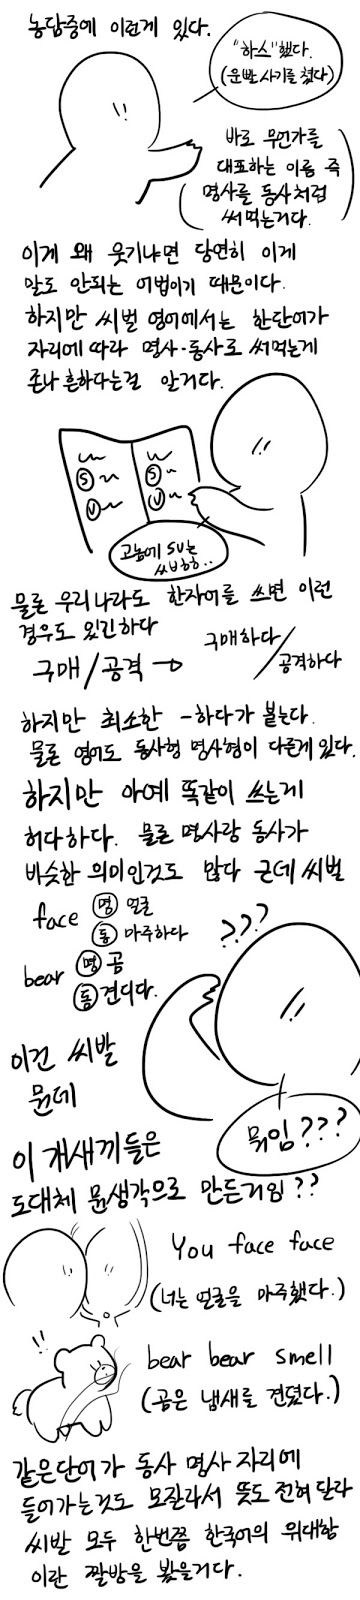 농담중에 이런게 있다.
"하스"했다.
(운빨 사기를 쳤다)
바로 무언가를
대표하는 이름 즉
명사를 동사처럼
써먹는거다.
이게 왜 웃기냐면 당연히 이게
말도 안되는 어법이기 때문이다.
하지만 씨벌 영어에서는 한단어가
자리에 따라 명사·동사로 써먹는게
존나 흔하다는걸 알거다.
S
V
S
V
고놈에 SV는
씨バ
물론 우리나라도 한자어를 쓰면 이런
경우도 있긴하다
구매/공격 → 구매하다/공격하다
하지만 최소한 -하다가 붙는다.
물론 영어도 동사형 명사형이 다른게 있다.
하지만 아예 똑같이 쓰는게
허다하다. 물론 명사랑 동사가
비슷한 의미인것도 많다 근데 씨벌
face 명 얼굴
동 마주하다
bear 명 곰
동 견디다.
???
이건 씨발
뭔데
뭐임???
이 개새끼들은
도대체 뭔생각으로 만든거임??
You face face
(너는 얼굴을 마주했다.)
!!
bear bear smell
(곰은 냄새를 견뎠다.)
같은단어가 동사 명사 자리에
들어가는것도 모자라서 뜻도 전혀 달라
씨발 모두 한번쯤 한국어의 위대함
이란 짤방을 봤을거다.